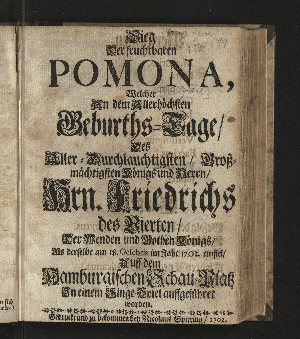 Sieg
Der fruchtbaren
POMONA,
Welcher
An dem Allerhöchsten
Geburths-Tage/
Des
Aller-Durchlauchtigsten/ Groß-
mächtigsten Königs und Herrn/
Hrn. Friedrichs
des Vierten/
Der Wenden und Gothen Königs/
Als derselbe am 18. Octobris im Jahr 1702. einfiel/
Auf dem
Hamburgischen Schau-Platz
In einem Singe-Spiel auffgeführet
worden.
Gedruckt und zu bekommen bey Nicolaus Spiering/ 1702.